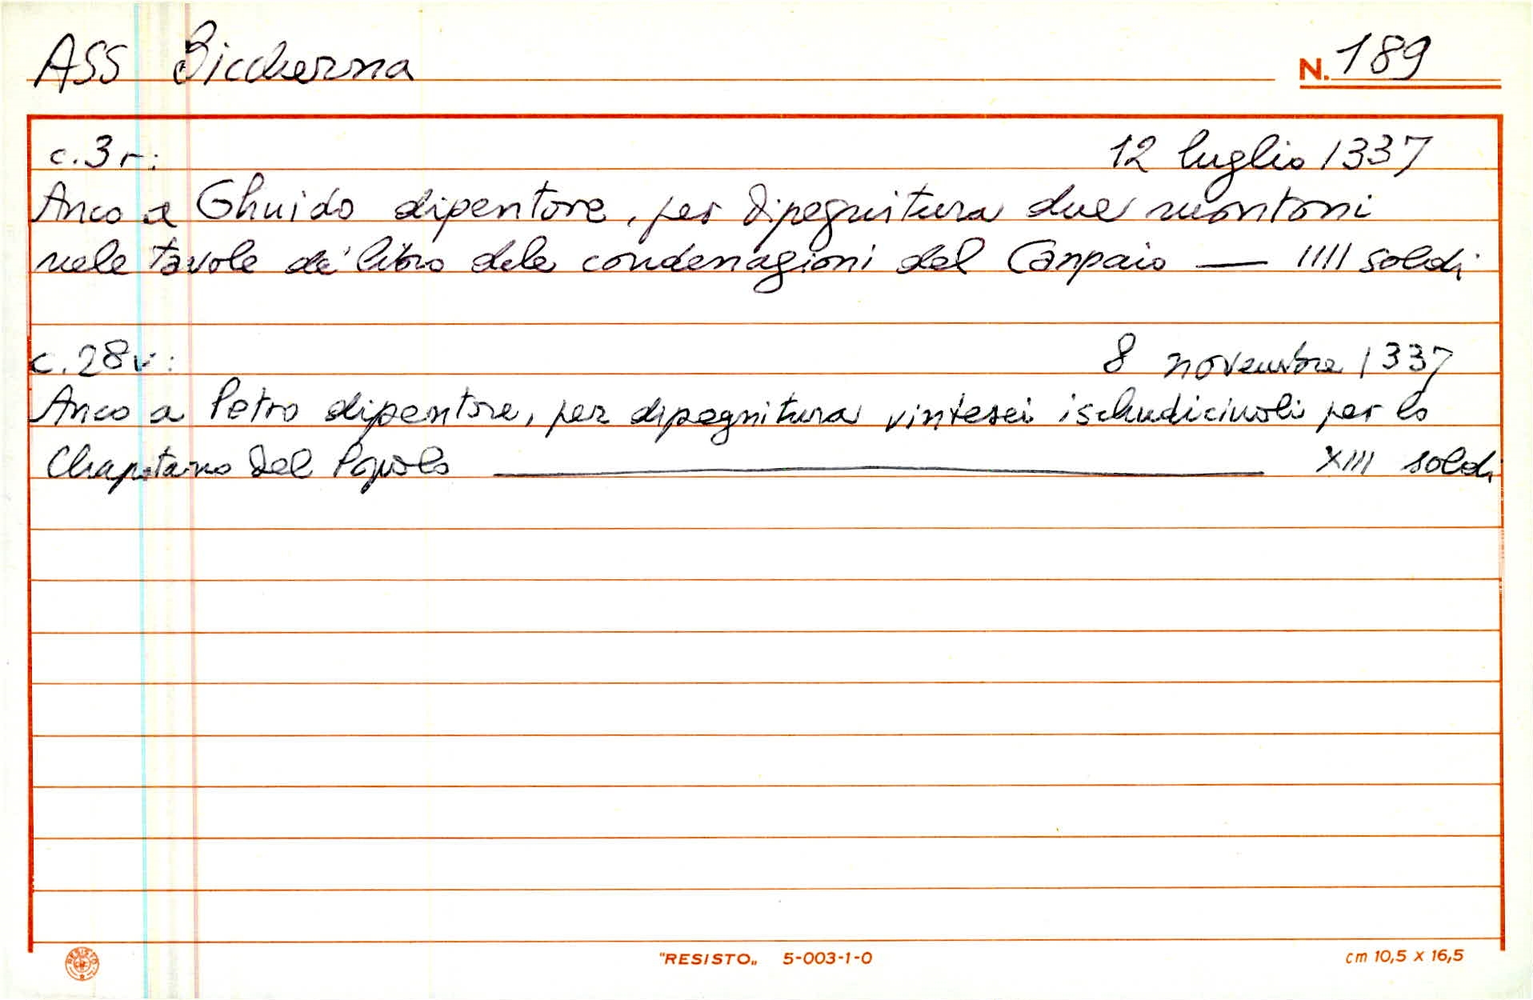 ASS Biccherna N. 189
c.3r: 12 luglio 1337
Anco a Ghuido dipentore, per dipegnitura due montoni
nele tavole de' libro dele condenagioni del Canpaio — IIII soldi
c.28v: 8 novembre 1337
Anco a Petro dipentore, per dipegnitura vintesei ischudiciuoli per lo
Chapitano del Popolo — XIII soldi
RESISTO
"RESISTO„ 5-003-1-0 cm 10,5 x 16,5